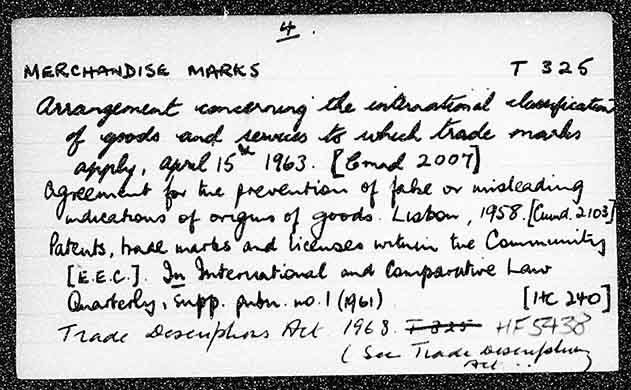 4.
MERCHANDISE MARKS T 325
Arrangement concerning the international classification
of goods and services to which trade marks
apply, April 15th 1963. [Cmnd 2007]
Agreement for the prevention of false or misleading
indications of origins of goods. Lisbon, 1958. [Cmnd. 2103]
Patents, trade marks and licenses within the Community
[E.E.C.]. In International and Comparative Law
Quarterly, Supp. pubn. no. 1 (1961) [HC 240]
Trade Descriptions Act 1968. T 325 HF5438
(See Trade Descriptions
Act...